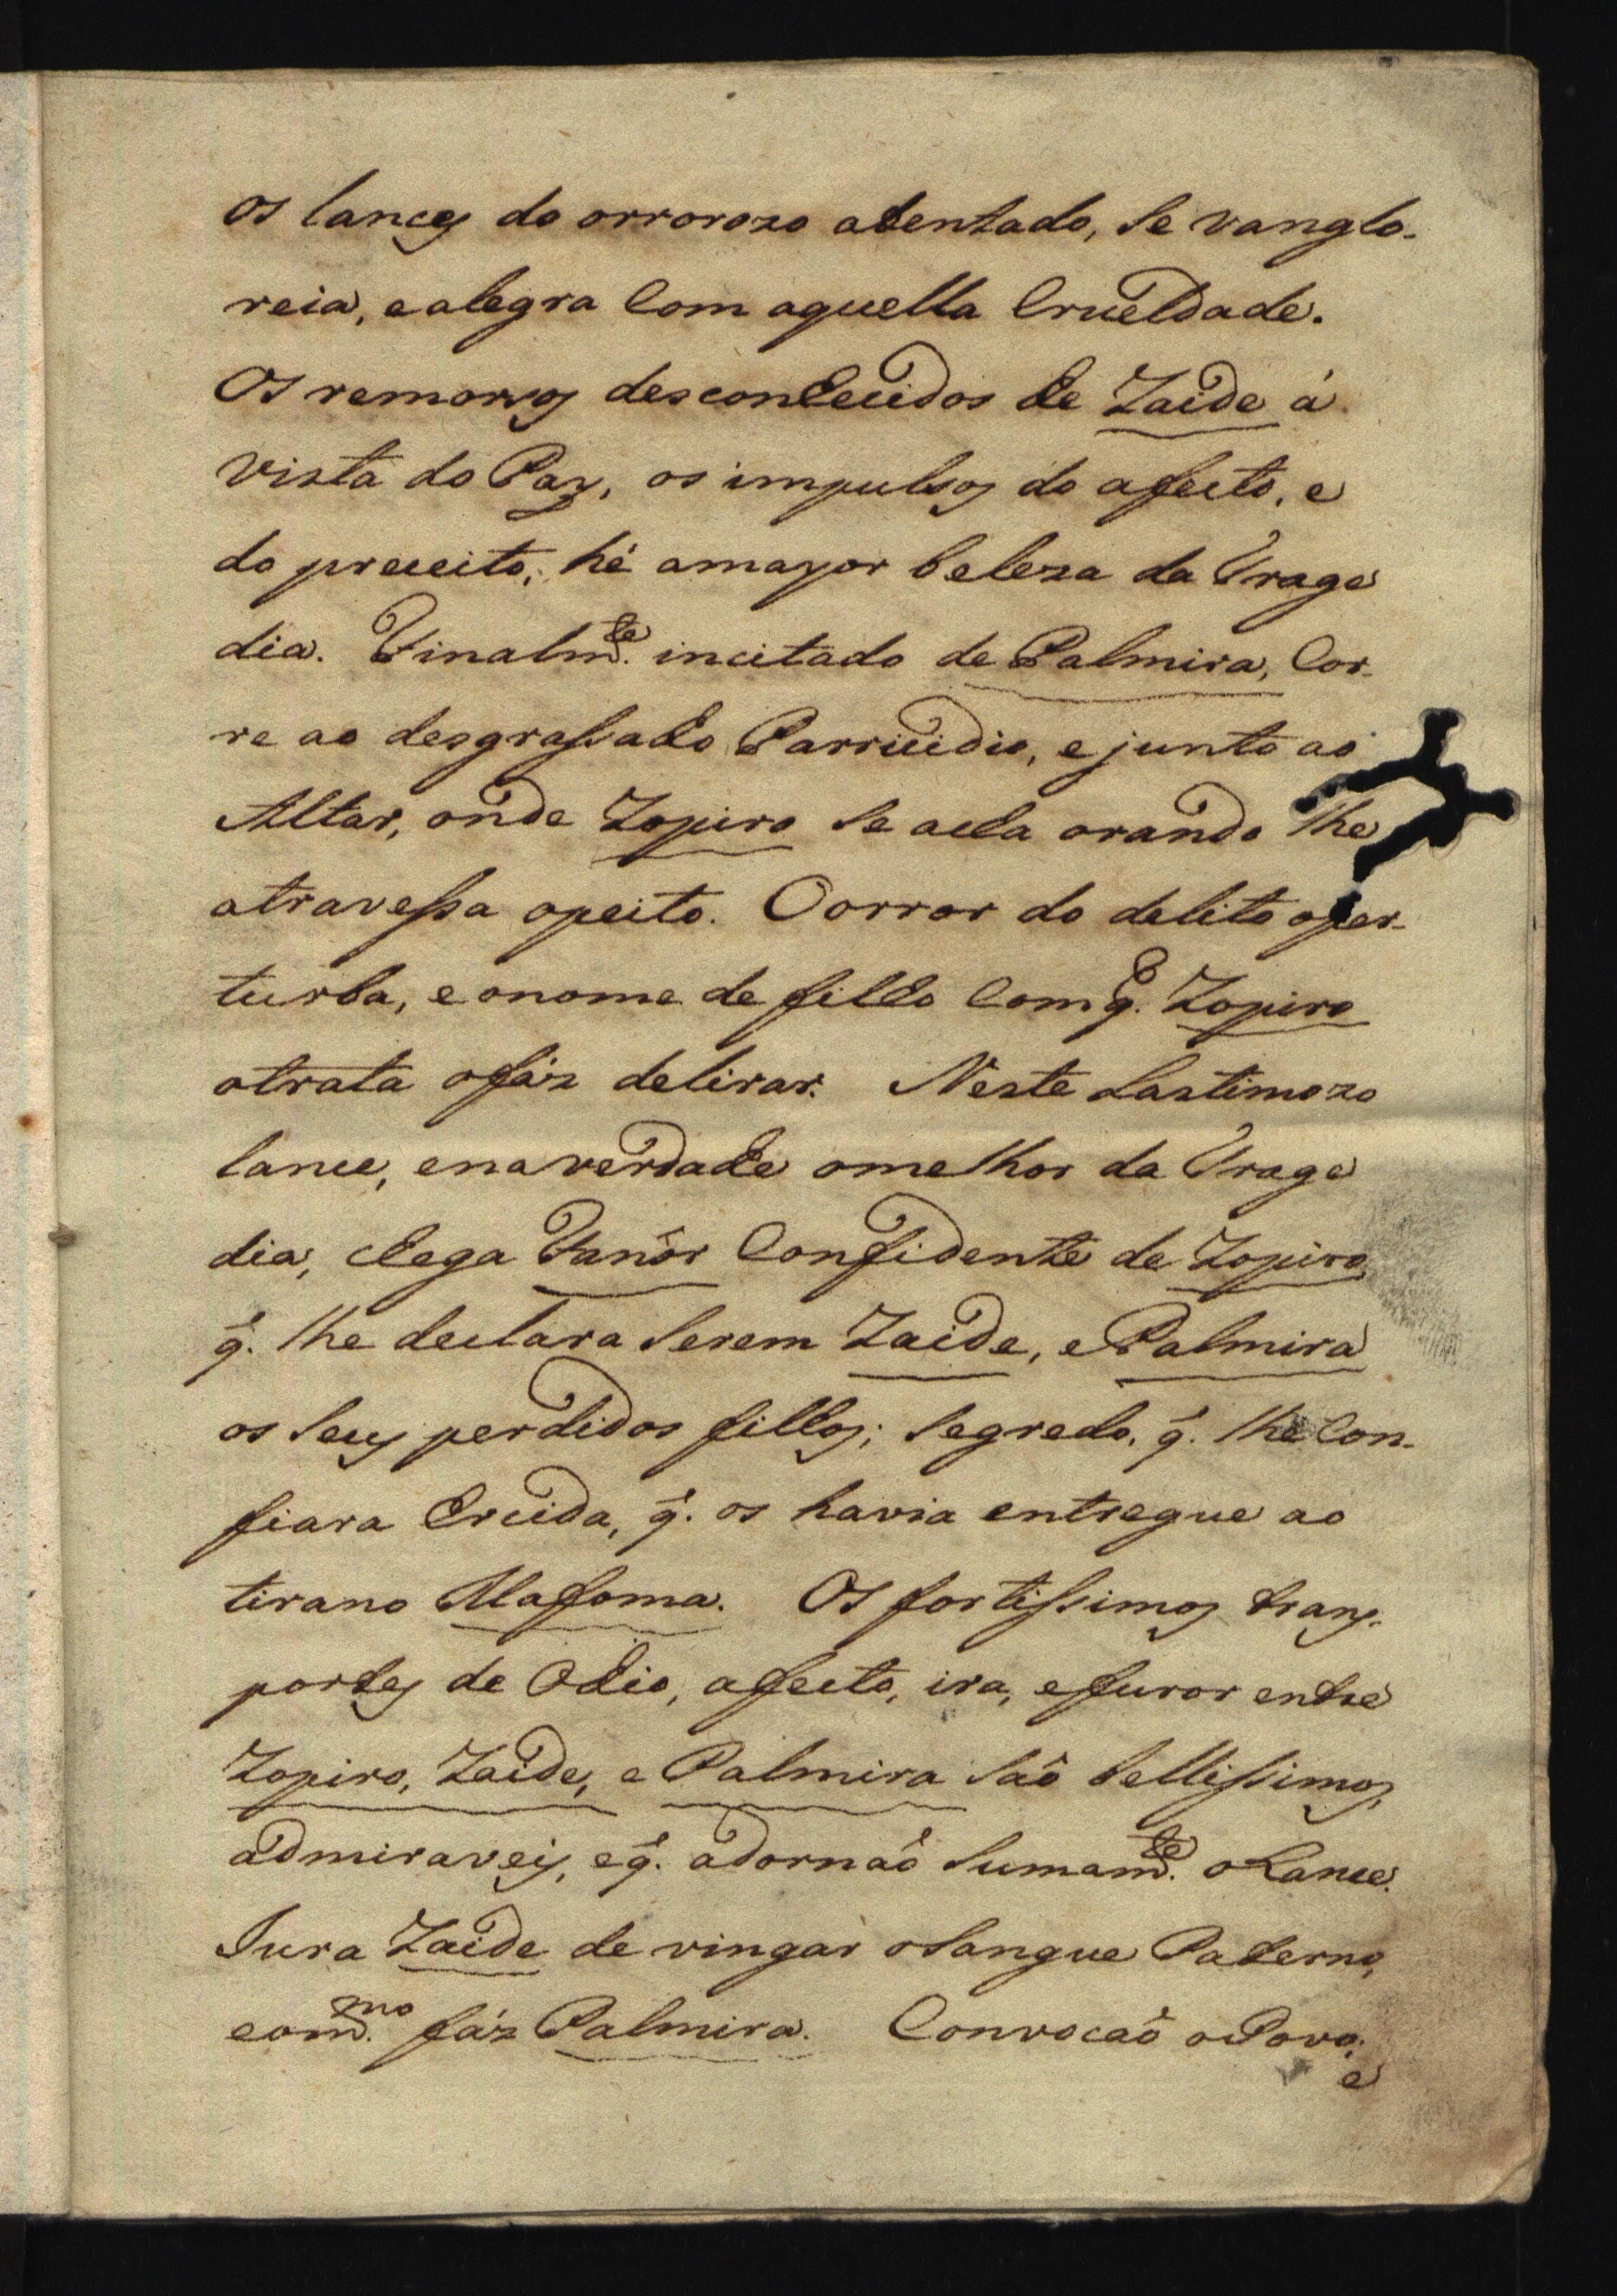 os lances do orrorozo atentado, se vanglo-
reia, e alegra Com aquella Crueldade.
Os remorsos desconhecidos de Zaide á
vista do Pay, os impulsos do afecto, e
do preceito; hé a mayor beleza da Trage
dia. Finalm.te incitado de Palmira, Cor-
re ao desgrassado Parricidio, e junto ao
Altar, onde Zopiro se acha orando lhe
atravessa o peito. O orror do delito o per-
turba, e o nome de filho Com q̃. Zopiro
o trata o fáz delirar. Neste Lastimozo
lance, e na verdade o melhor da Trage
dia, chega Fanôr Confidente de Zopiro
q̃. lhe declara serem Zaide, e Palmira
os seus perdidos filhos; segredo, q̃. lhe Con-
fiara Ercida, q̃. os havia entregue ao
tirano Mafoma. Os fortissimos trans-
portes de Odio, afecto, ira, e furor entre
Zopiro, Zaide, e Palmira saõ bellissimos,
admiraveis, e q̃. adornaõ sumam.te o Lance.
Jura Zaide de vingar o sangue Paterno,
e o m.mo fáz Palmira. Convocaõ o Povo;
e